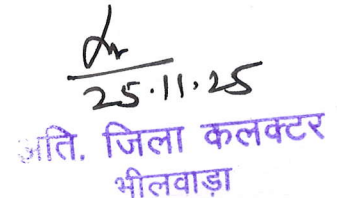 25.11.25
अति. जिला कलक्टर
भीलवाड़ा